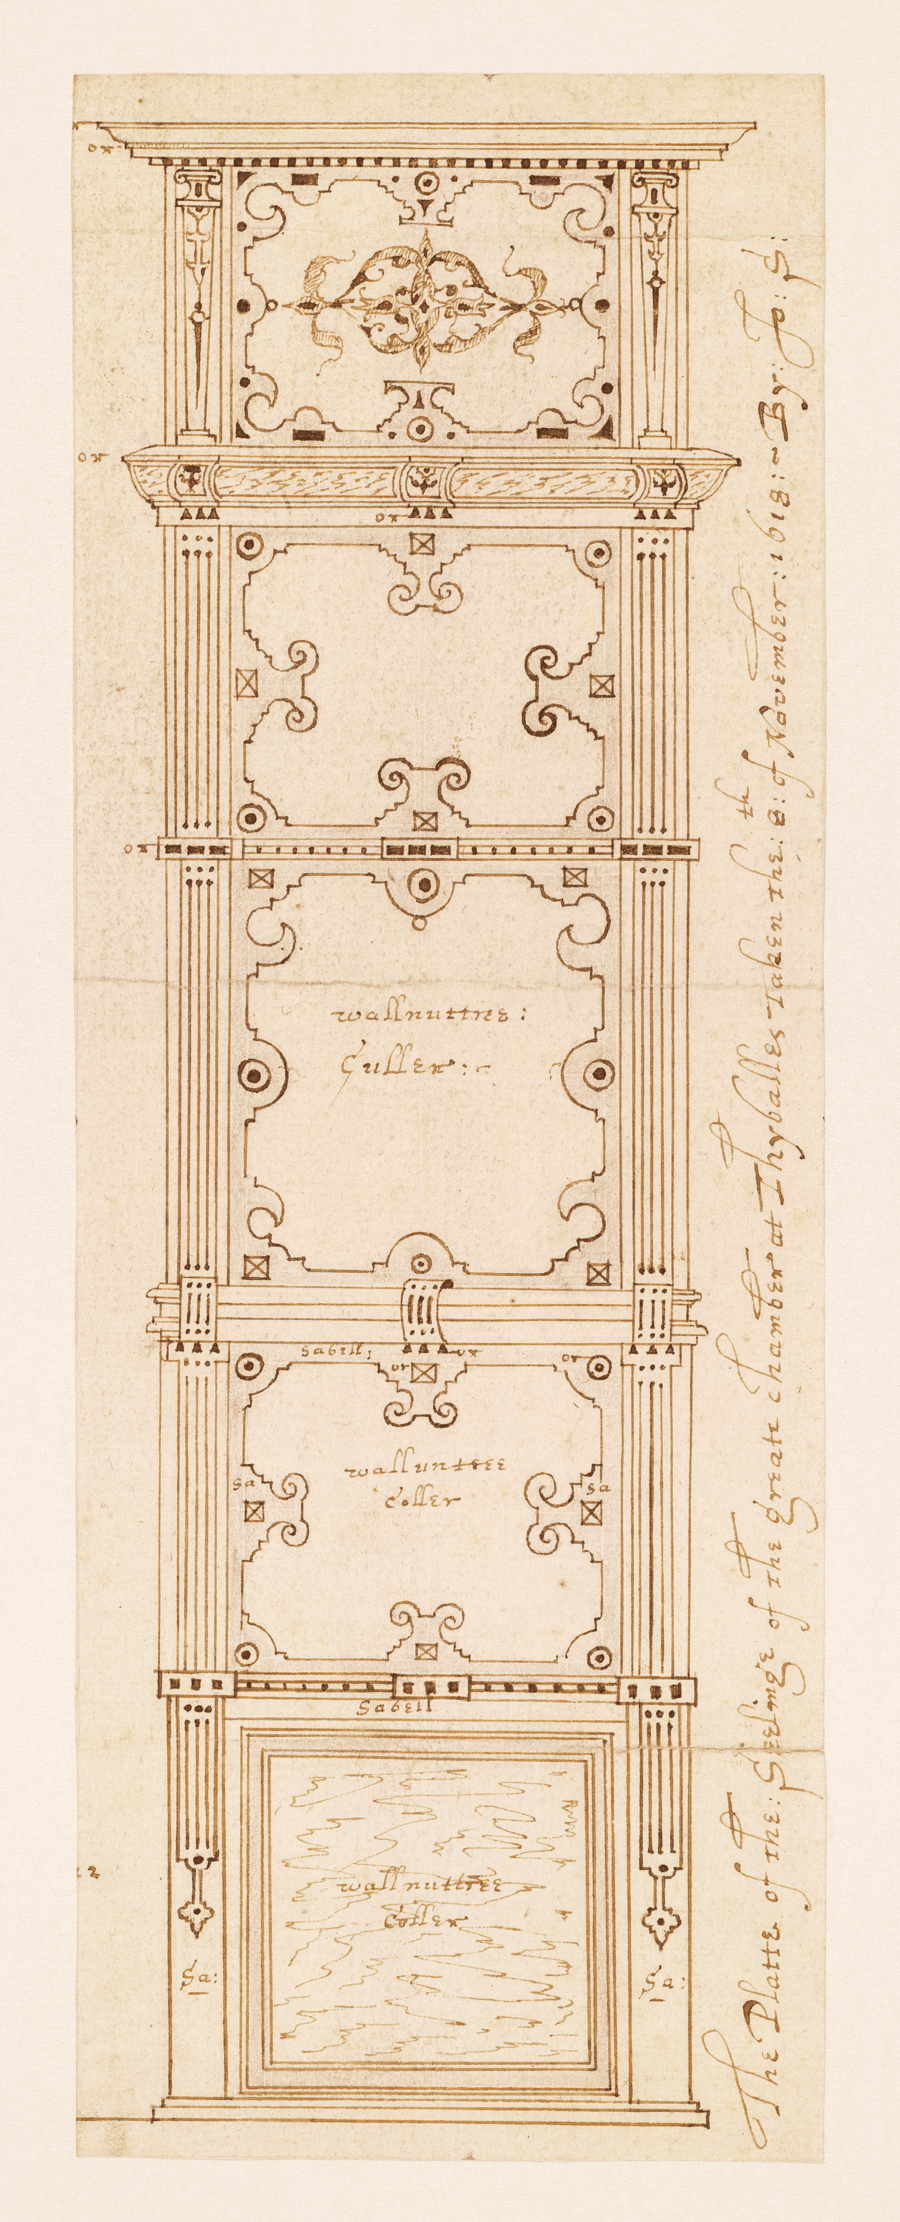 or
or
or
or
wallnuttree:
Culler:~
Sabell;
or
or
or
wallnuttree
coller
Sa
Sa
Sabell
wallnuttree
coller
22
Sa:
Sa:
The Platte of the: Seelinge of the greate chamber at Thyballes Taken the: 8:th of November: 1618:~ By: Jo: S: